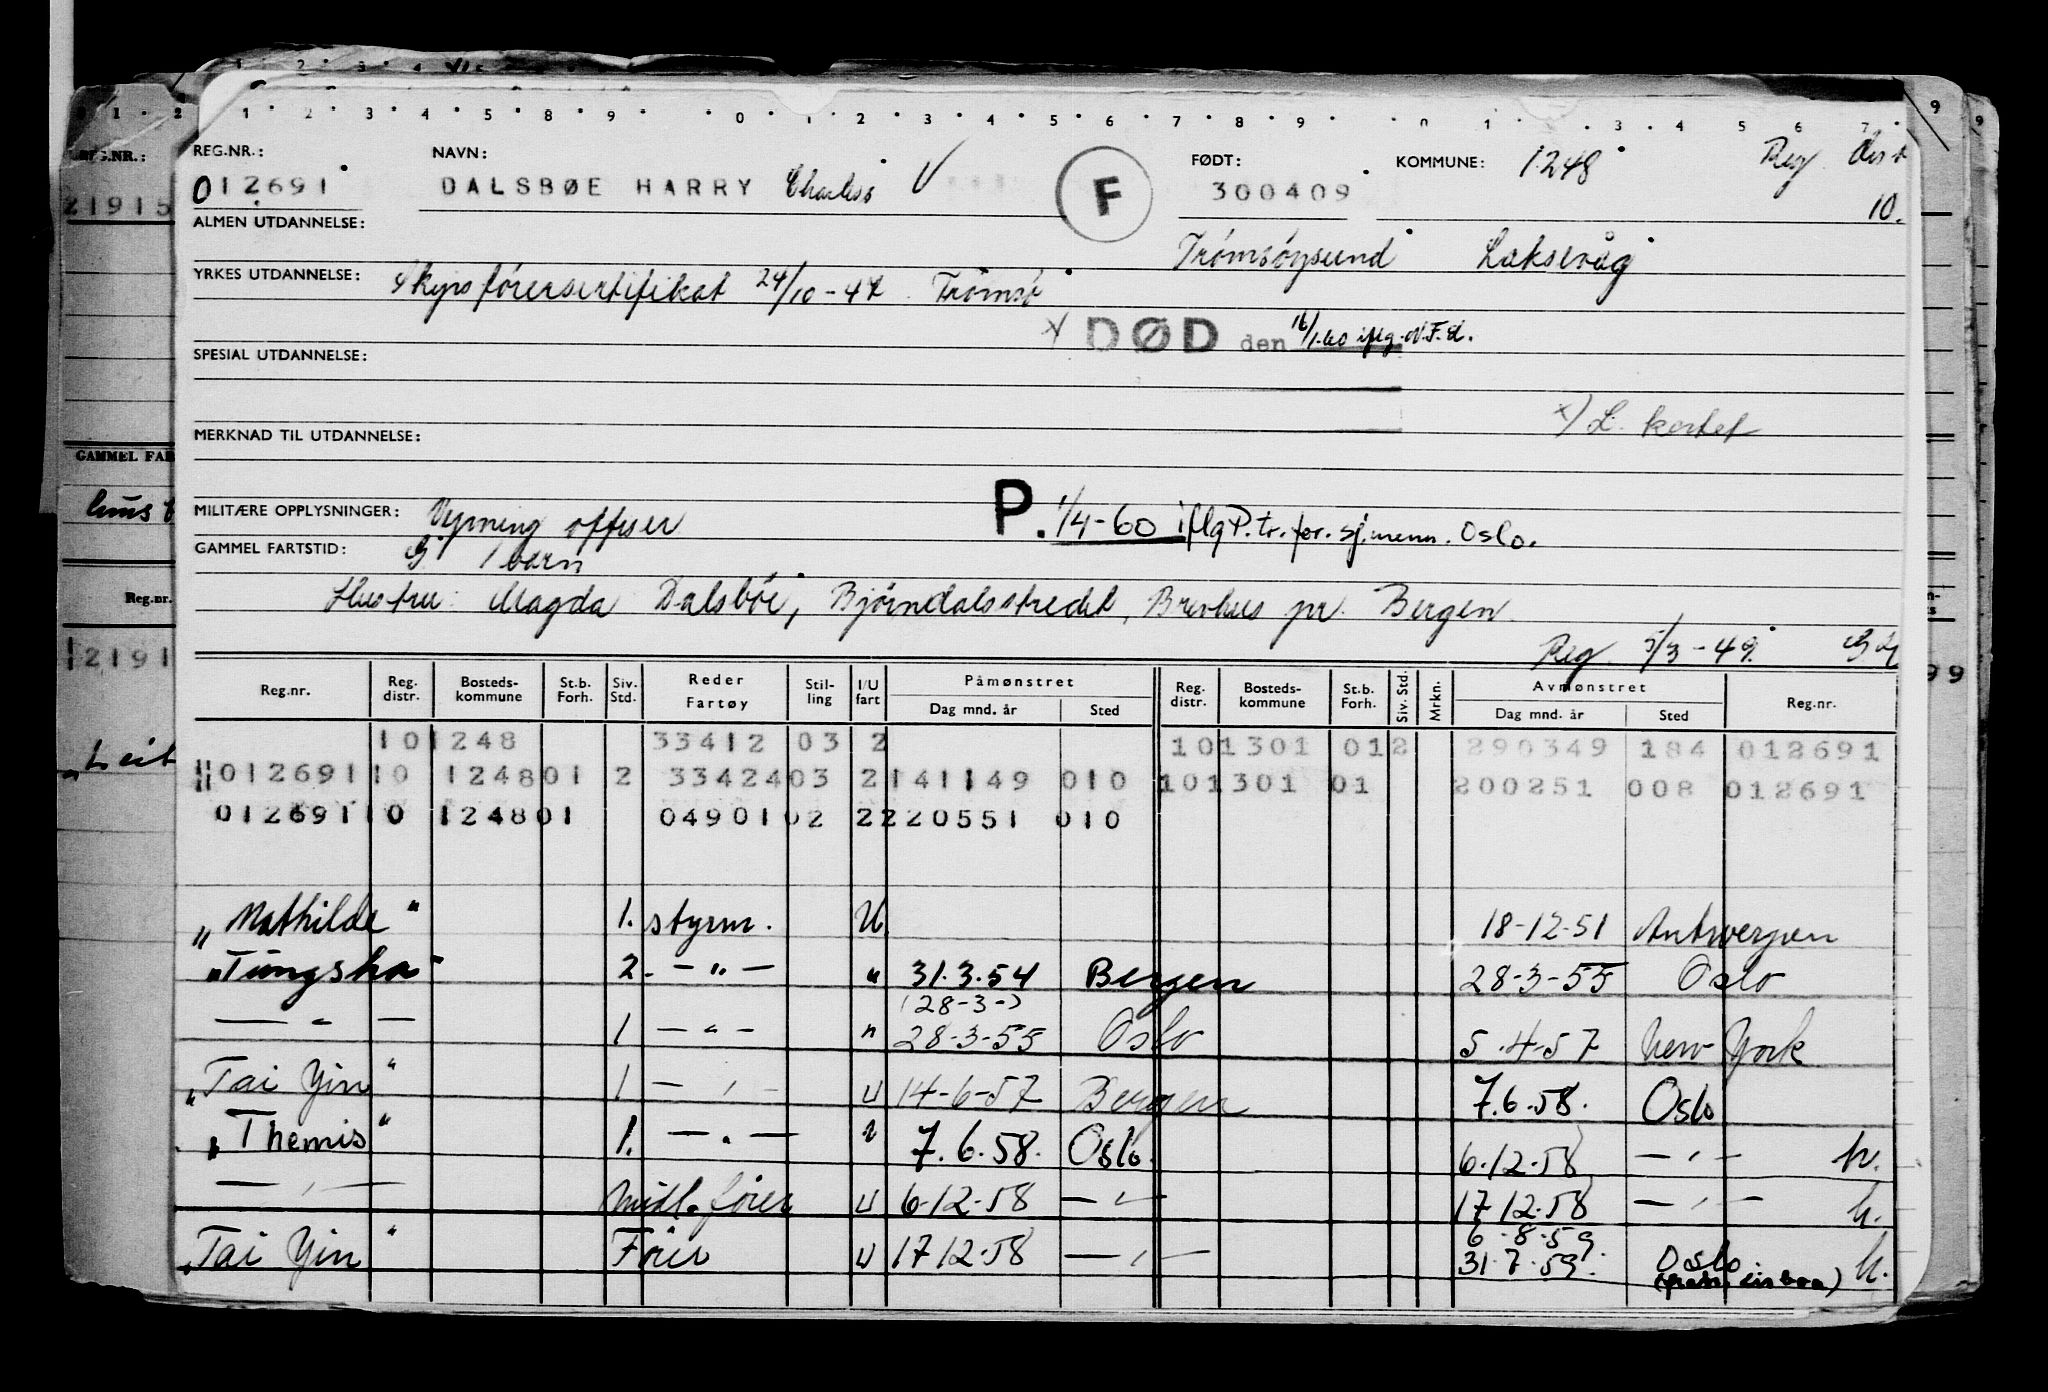 REG.NR.: NAVN: FØDT: KOMMUNE: 1248 Reg. distr
012691 DALSBØE HARRY Charles V F 300409 10.
ALMEN UTDANNELSE: Tromsøysund Laksevåg
YRKES UTDANNELSE: Skipsførersertifikat 24/10-47 Tromsø
x DØD den 16/1.60 iflg. N.F.d.
SPESIAL UTDANNELSE:
x) L. kortet
MERKNAD TIL UTDANNELSE:
MILITÆRE OPPLYSNINGER: offiser P. 1/4-60 iflg P.tr.for.sj.menn. Oslo.
GAMMEL FARTSTID: G 1 barn
Hustru: Magda Dalsböe, Björndalsstredet, Brevhus pr. Bergen
Reg. 5/3-49.
Reg.nr. Reg. distr. Bosteds-kommune St.b. Forh. Siv. Std. Reder Fartøy Stil-ling I/U fart Påmønstret Dag mnd. år Sted Reg. distr. Bosteds-kommune St.b. Forh. Siv. Std. Mrkn. Avmønstret Dag mnd. år Sted Reg.nr.
101248 33412 03 2 101301 012 290349 184 012691
012691 10 124801 2 33424 03 2 141149 010 101301 01 200251 008 012691
012691 10 124801 04901 02 2 220551 010
"Mathilde" 1. styrm. U 18-12-51 Antwerpen
"Tungsha" 2. — " — " 31.3.54 Bergen 28-3-55 Oslo
(28-3-)
— " — 1 — " — " 28-3-55 Oslo 5.4.57 New York
"Tai Yin" 1 — " — U 14-6-57 Bergen 7.6.58. Oslo
"Themis" 1. — " — " 7.6.58. Oslo. 6.12.58 — " — h.
— " — midl. fører U 6-12-58 — " — 17 12.58 — " — h.
6-8-59
"Tai Yin" Förer U 17 12-58 — " — 31.7.59. Oslo h.
REG.NR.:
21915
GAMMEL FAR
Reg.nr.
12191
99